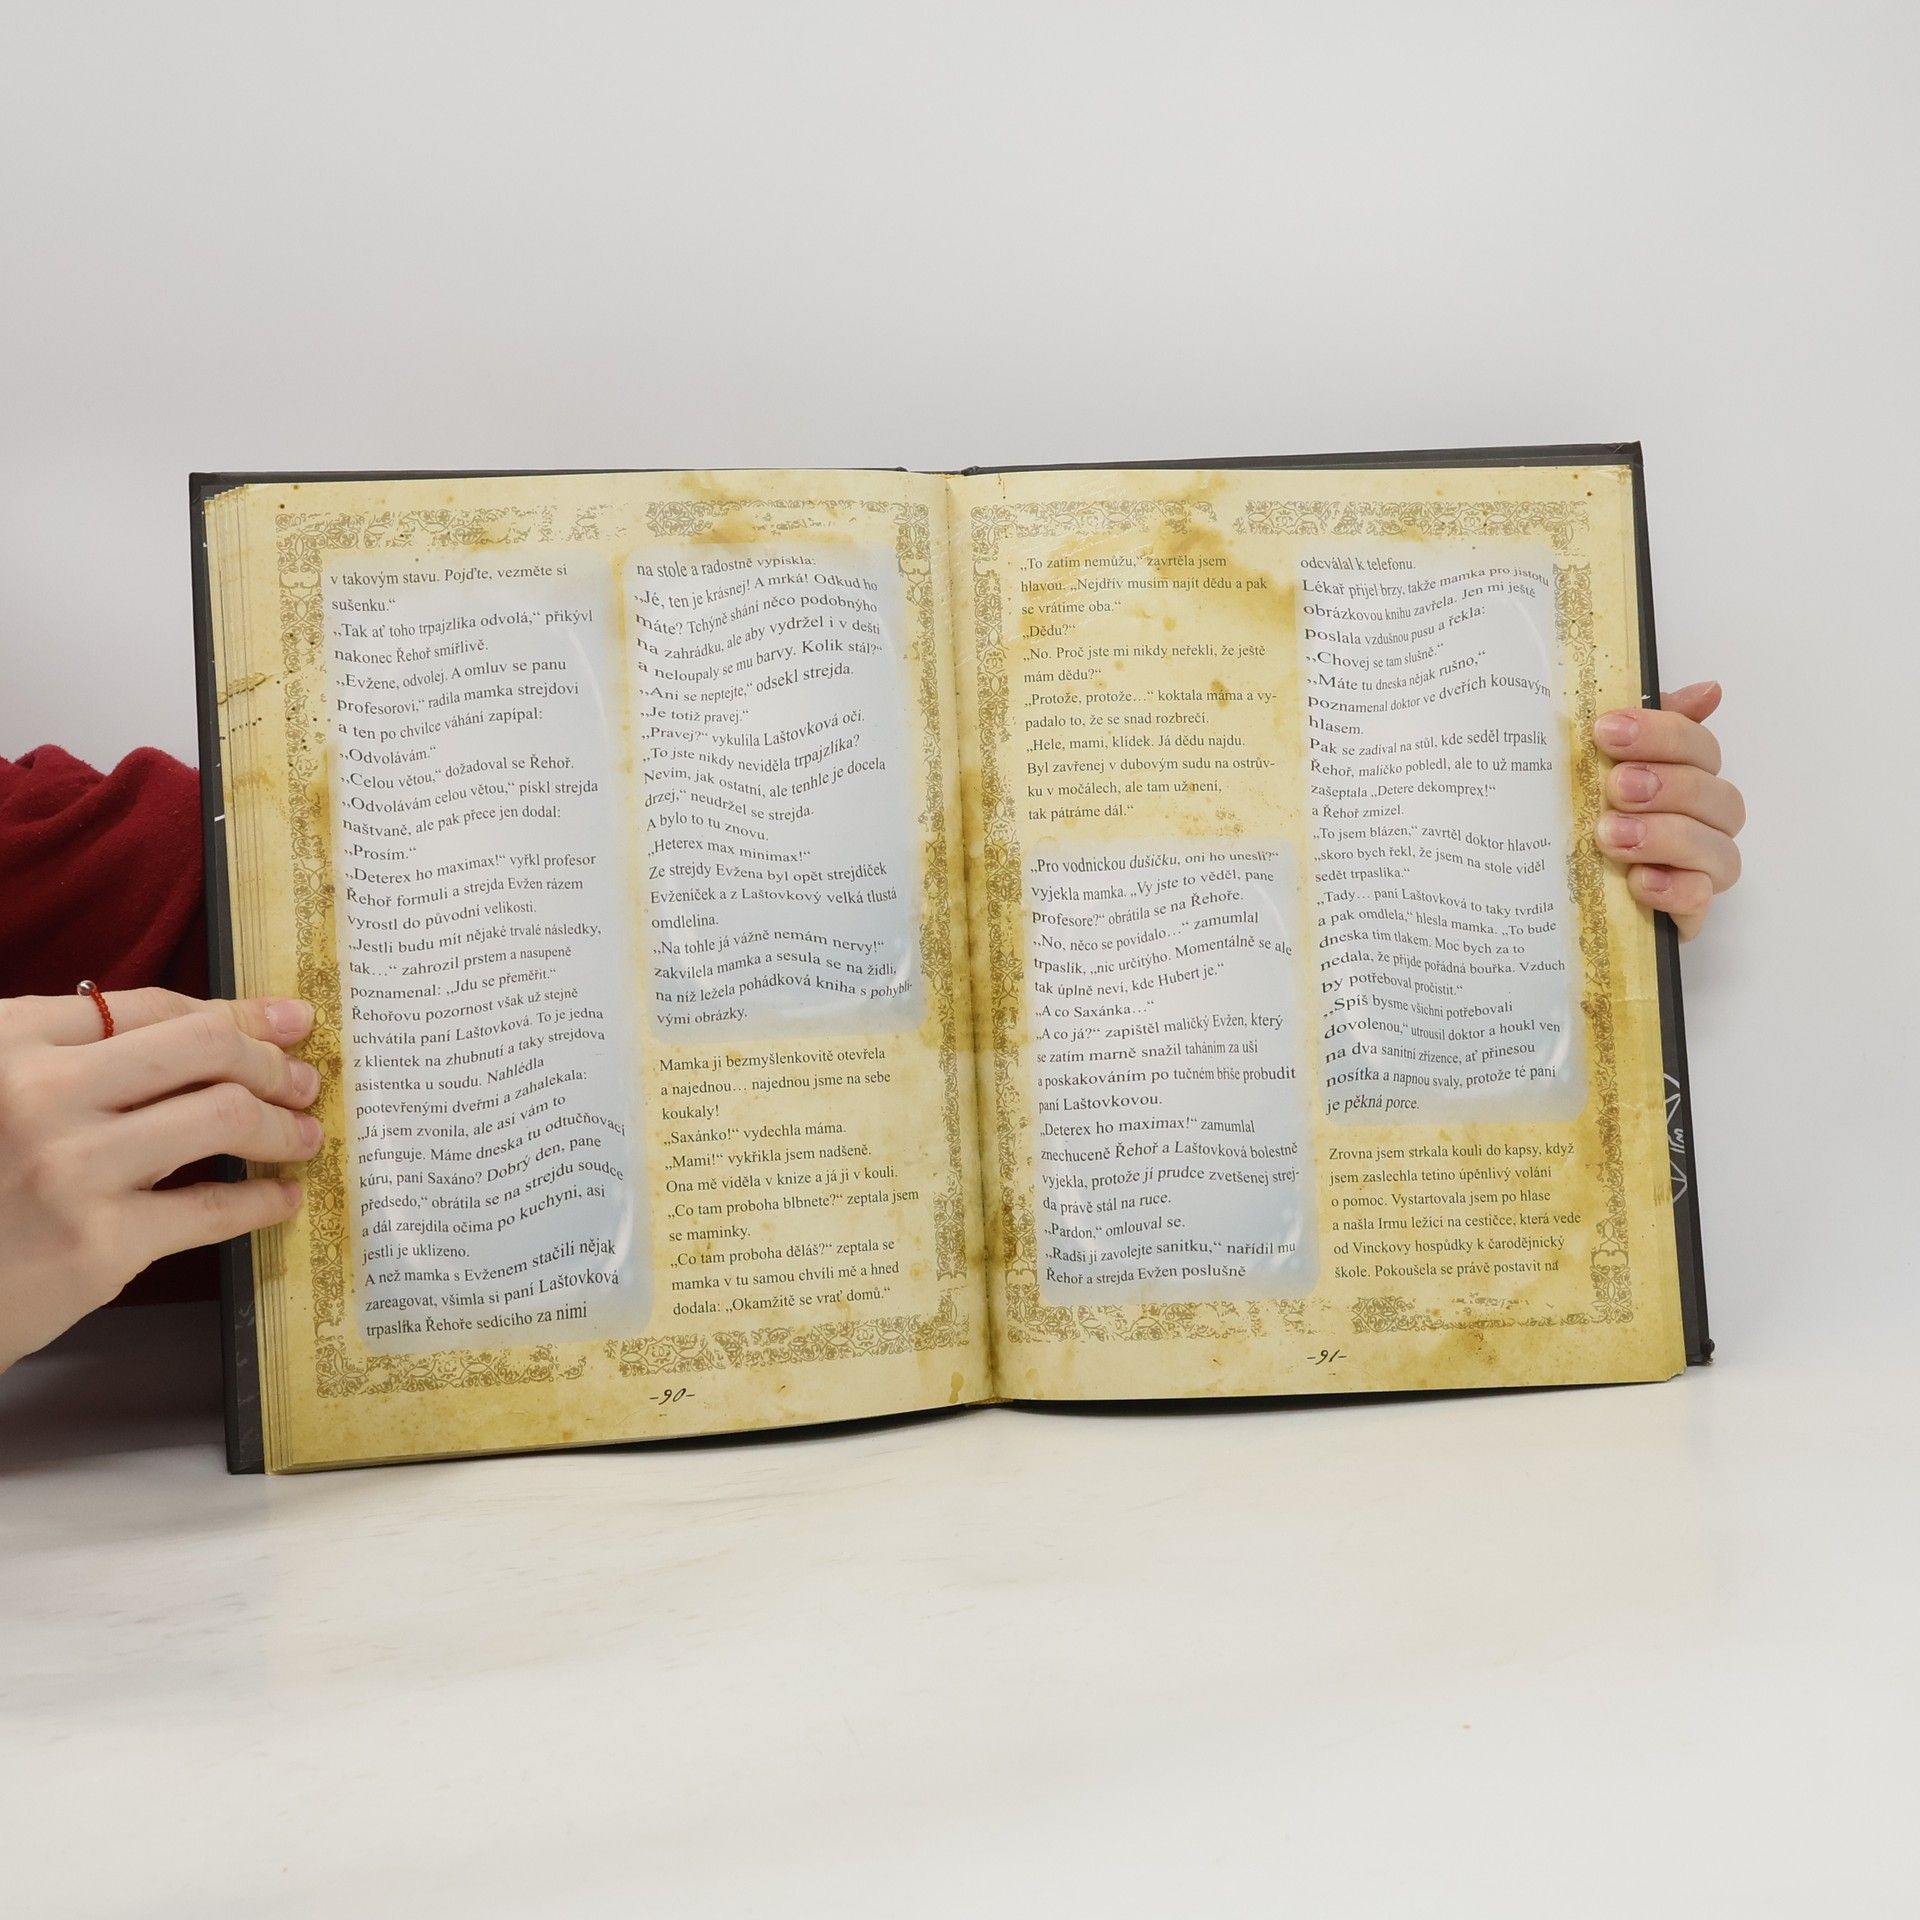 v takovým stavu. Pojďte, vezměte si
sušenku.“
„Tak ať toho trpajzlíka odvolá,“ přikývl
nakonec Řehoř smířlivě.
„Evžene, odvolej. A omluv se panu
profesorovi,“ radila mamka strejdovi
a ten po chvilce váhání zapípal:
„Odvolávám.“
„Celou větou,“ dožadoval se Řehoř.
„Odvolávám celou větou,“ pískl strejda
naštvaně, ale pak přece jen dodal:
„Prosím.“
„Deterex ho maximax!“ vyřkl profesor
Řehoř formuli a strejda Evžen rázem
vyrostl do původní velikosti.
„Jestli budu mít nějaké trvalé následky,
tak…“ zahrozil prstem a nasupeně
poznamenal: „Jdu se přeměřit.“
Řehořovu pozornost však už stejně
uchvátila paní Laštovková. To je jedna
z klientek na zhubnutí a taky strejdova
asistentka u soudu. Nahlédla
pootevřenými dveřmi a zahalekala:
„Já jsem zvonila, ale asi vám to
nefunguje. Máme dneska tu odtučňovací
kúru, paní Saxáno? Dobrý den, pane
předsedo,“ obrátila se na strejdu soudce
a dál zarejdila očima po kuchyni, asi
jestli je uklizeno.
A než mamka s Evženem stačili nějak
zareagovat, všimla si paní Laštovková
trpaslíka Řehoře sedícího za nimi
na stole a radostně vypískla:
„Jé, ten je krásnej! A mrká! Odkud ho
máte? Tchýně shání něco podobnýho
na zahrádku, ale aby vydržel i v dešti
a neloupaly se mu barvy. Kolik stál?“
„Ani se neptejte,“ odsekl strejda.
„Je totiž pravej.“
„Pravej?“ vykulila Laštovková oči.
„To jste nikdy neviděla trpajzlíka?
Nevím, jak ostatní, ale tenhle je docela
drzej,“ neudržel se strejda.
A bylo to tu znovu.
„Heterex max minimax!“
Ze strejdy Evžena byl opět strejdíček
Evženíček a z Laštovkový velká tlustá
omdlelina.
„Na tohle já vážně nemám nervy!“
zakvílela mamka a sesula se na židli,
na níž ležela pohádková kniha s pohybli-
vými obrázky.
Mamka ji bezmyšlenkovitě otevřela
a najednou… najednou jsme na sebe
koukaly!
„Saxánko!“ vydechla máma.
„Mami!“ vykřikla jsem nadšeně.
Ona mě viděla v knize a já ji v kouli.
„Co tam proboha blbnete?“ zeptala jsem
se maminky.
„Co tam proboha děláš?“ zeptala se
mamka v tu samou chvíli mě a hned
dodala: „Okamžitě se vrať domů.“
-90-
„To zatím nemůžu,“ zavrtěla jsem
hlavou. „Nejdřív musím najít dědu a pak
se vrátíme oba.“
„Dědu?“
„No. Proč jste mi nikdy neřekli, že ještě
mám dědu?“
„Protože, protože…“ koktala máma a vy-
padalo to, že se snad rozbrečí.
„Hele, mami, klídek. Já dědu najdu.
Byl zavřenej v dubovým sudu na ostrův-
ku v močálech, ale tam už není,
tak pátráme dál.“
„Pro vodnickou dušičku, oni ho unesli?“
vyjekla mamka. „Vy jste to věděl, pane
profesore?“ obrátila se na Řehoře.
„No, něco se povídalo…“ zamumlal
trpaslík, „nic určitýho. Momentálně se ale
tak úplně neví, kde Hubert je.“
„A co Saxánka…“
„A co já?“ zapištěl maličký Evžen, který
se zatím marně snažil taháním za uši
a poskakováním po tučném břiše probudit
paní Laštovkovou.
„Deterex ho maximax!“ zamumlal
znechuceně Řehoř a Laštovková bolestně
vyjekla, protože jí prudce zvetšenej strej-
da právě stál na ruce.
„Pardon,“ omlouval se.
„Radši jí zavolejte sanitku,“ nařídil mu
Řehoř a strejda Evžen poslušně
odcválal k telefonu.
Lékař přijel brzy, takže mamka pro jistotu
obrázkovou knihu zavřela. Jen mi ještě
poslala vzdušnou pusu a řekla:
„Chovej se tam slušně.“
„Máte tu dneska nějak rušno,“
poznamenal doktor ve dveřích kousavým
hlasem.
Pak se zadíval na stůl, kde seděl trpaslík
Řehoř, maličko pobledl, ale to už mamka
zašeptala „Detere dekomprex!“
a Řehoř zmizel.
„To jsem blázen,“ zavrtěl doktor hlavou,
„skoro bych řekl, že jsem na stole viděl
sedět trpaslíka.“
„Tady… paní Laštovková to taky tvrdila
a pak omdlela,“ hlesla mamka. „To bude
dneska tím tlakem. Moc bych za to
nedala, že přijde pořádná bouřka. Vzduch
by potřeboval pročistit.“
„Spíš bysme všichni potřebovali
dovolenou,“ utrousil doktor a houkl ven
na dva sanitní zřízence, ať přinesou
nosítka a napnou svaly, protože té paní
je pěkná porce.
Zrovna jsem strkala kouli do kapsy, když
jsem zaslechla tetino úpěnlivý volání
o pomoc. Vystartovala jsem po hlase
a našla Irmu ležící na cestičce, která vede
od Vinckovy hospůdky k čarodějnický
škole. Pokoušela se právě postavit na
-91-